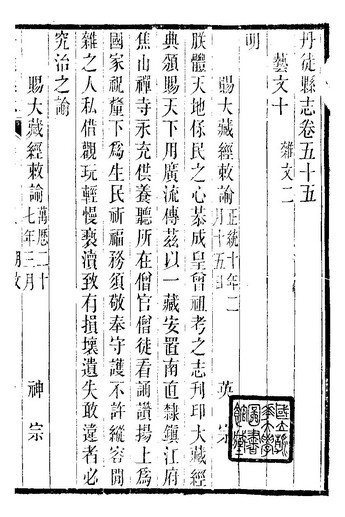 丹徒縣志卷五十五
藝文十 雜文二
明
賜大藏經敕諭 正統十年二月十五日 英宗
朕體天地保民之心恭成皇曾祖考之志刊印大藏經
典頒賜天下用廣流傳茲以一藏安置南直隸鎮江府
焦山禪寺永充供養聽所在僧官僧徒看誦讚揚上爲
國家祝釐下爲生民祈福務須敬奉守護不許縱容閒
雜之人私借觀玩輕慢褻瀆致有損壞遺失敢違者必
究治之諭
賜大藏經敕諭 萬歷二十七年三月 神宗